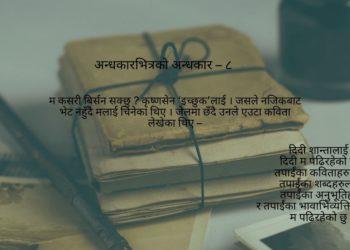 अन्धकारभित्रको अन्धकार – ८
म कसरी बिर्सन सक्छु ? कृष्णसेन 'इच्छुक'लाई । जसले नजिकबाट
भेट नहुँदै मलाई चिनेका थिए । जेलमा छँदै उनले एउटा कविता
लेखेका थिए –
दिदी शान्तालाई
दिदी म पढिरहेको
तपाईंका कविताहरु
तपाईंका शब्दहरुल
तपाईंका अनुभूतिह
र तपाईंका भावाभिव्यक्ति
म पढिरहेको छु